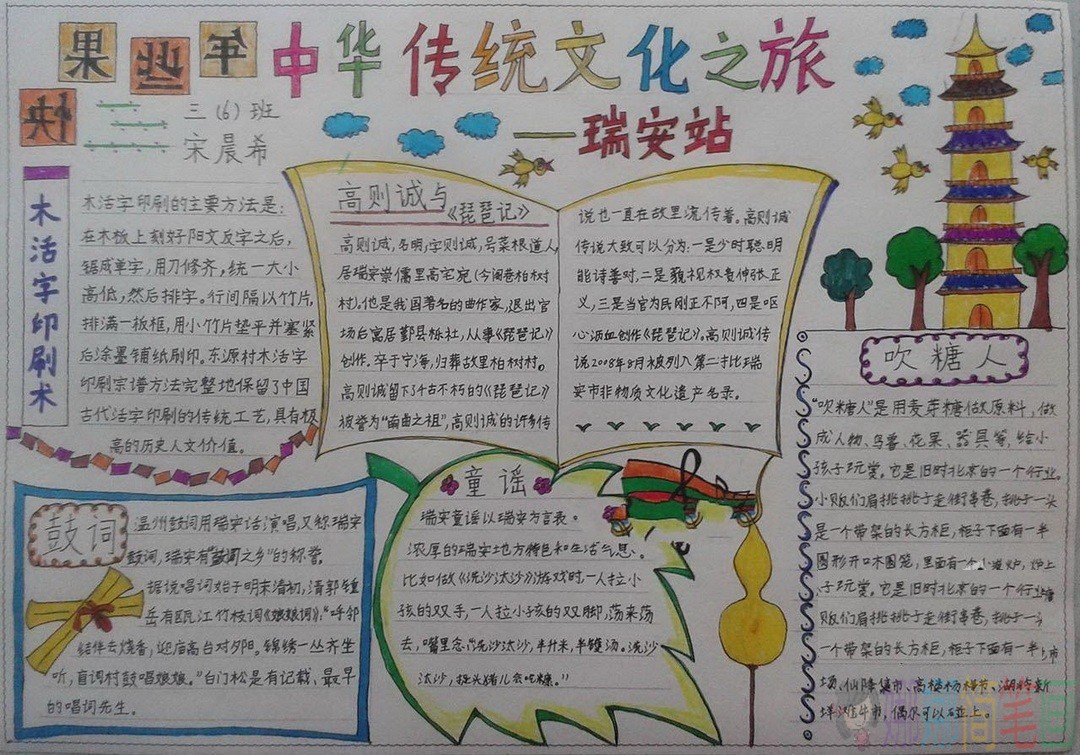 果 些 年
快
中华传统文化之旅
——瑞安站
三(6)班
宋晨希
木活字印刷术
木活字印刷的主要方法是:
在木板上刻好阳文反字之后,
锯成单字,用刀修齐,统一大小
高低,然后排字。行间隔以竹片,
排满一板框,用小竹片垫平并塞紧
后涂墨铺纸刷印。东源村木活字
印刷宗谱方法完整地保留了中国
古代活字印刷的传统工艺,具有极
高的历史人文价值。
高则诚与
《琵琶记》
高则诚,名明,字则诚,号菜根道人
居瑞安崇儒里高宅宛(今阁巷柏树
村)。他是我国著名的曲作家,退出官
场后寓居鄞县栎社,从事《琵琶记》
创作。卒于宁海,归葬故里柏树村。
高则诚留下千古不朽的《琵琶记》
被誉为“南曲之祖”,高则诚的许多传
说也一直在故里流传着。高则诚
传说大致可以分为:一是少时聪明
能诗善对,二是藐视权贵伸张正
义,三是当官为民刚正不阿,四是呕
心沥血创作《琵琶记》。高则诚传
说2008年8月被列入第二批瑞
安市非物质文化遗产名录。
吹糖人
“吹糖人”是用麦芽糖做原料,做
成人物、鸟兽、花果、器具等,给小
孩子玩赏。它是旧时北京的一个行业。
小贩们肩挑挑子走街串巷,挑子一头
是一个带架的长方柜,柜子下面有一半
圆形开口木圆笼,里面有一个小炉,炉上
子玩赏。它是旧时北京的一个行业
贩们肩挑挑子走街串巷,挑子一头
一个带架的长方柜,柜子下面有一半
场、仙降集市、高楼杨梅节、湖岭新
牛市,偶尔可以碰上。
鼓词
温州鼓词用瑞安话演唱,又称瑞安
鼓词,瑞安有“鼓词之乡”的称誉。
据说唱词始于明末清初,清郭钟
岳有瓯江竹枝词《娘娘词》:“呼邻
结伴去烧香,迎庙高台对夕阳。锦绣一丛齐坐
听,盲词村鼓唱娘娘。”白门松是有记载、最早
的唱词先生。
童谣
瑞安童谣以瑞安方言表。
浓厚的瑞安地方特色和生活气息。
比如做《洗沙汰沙》游戏时,一人拉小
孩的双手,一人拉小孩的双脚,荡来荡
去,嘴里念:“洗沙汰沙,半升米,半镬汤。洗沙
汰沙,猪儿会吃糠。”